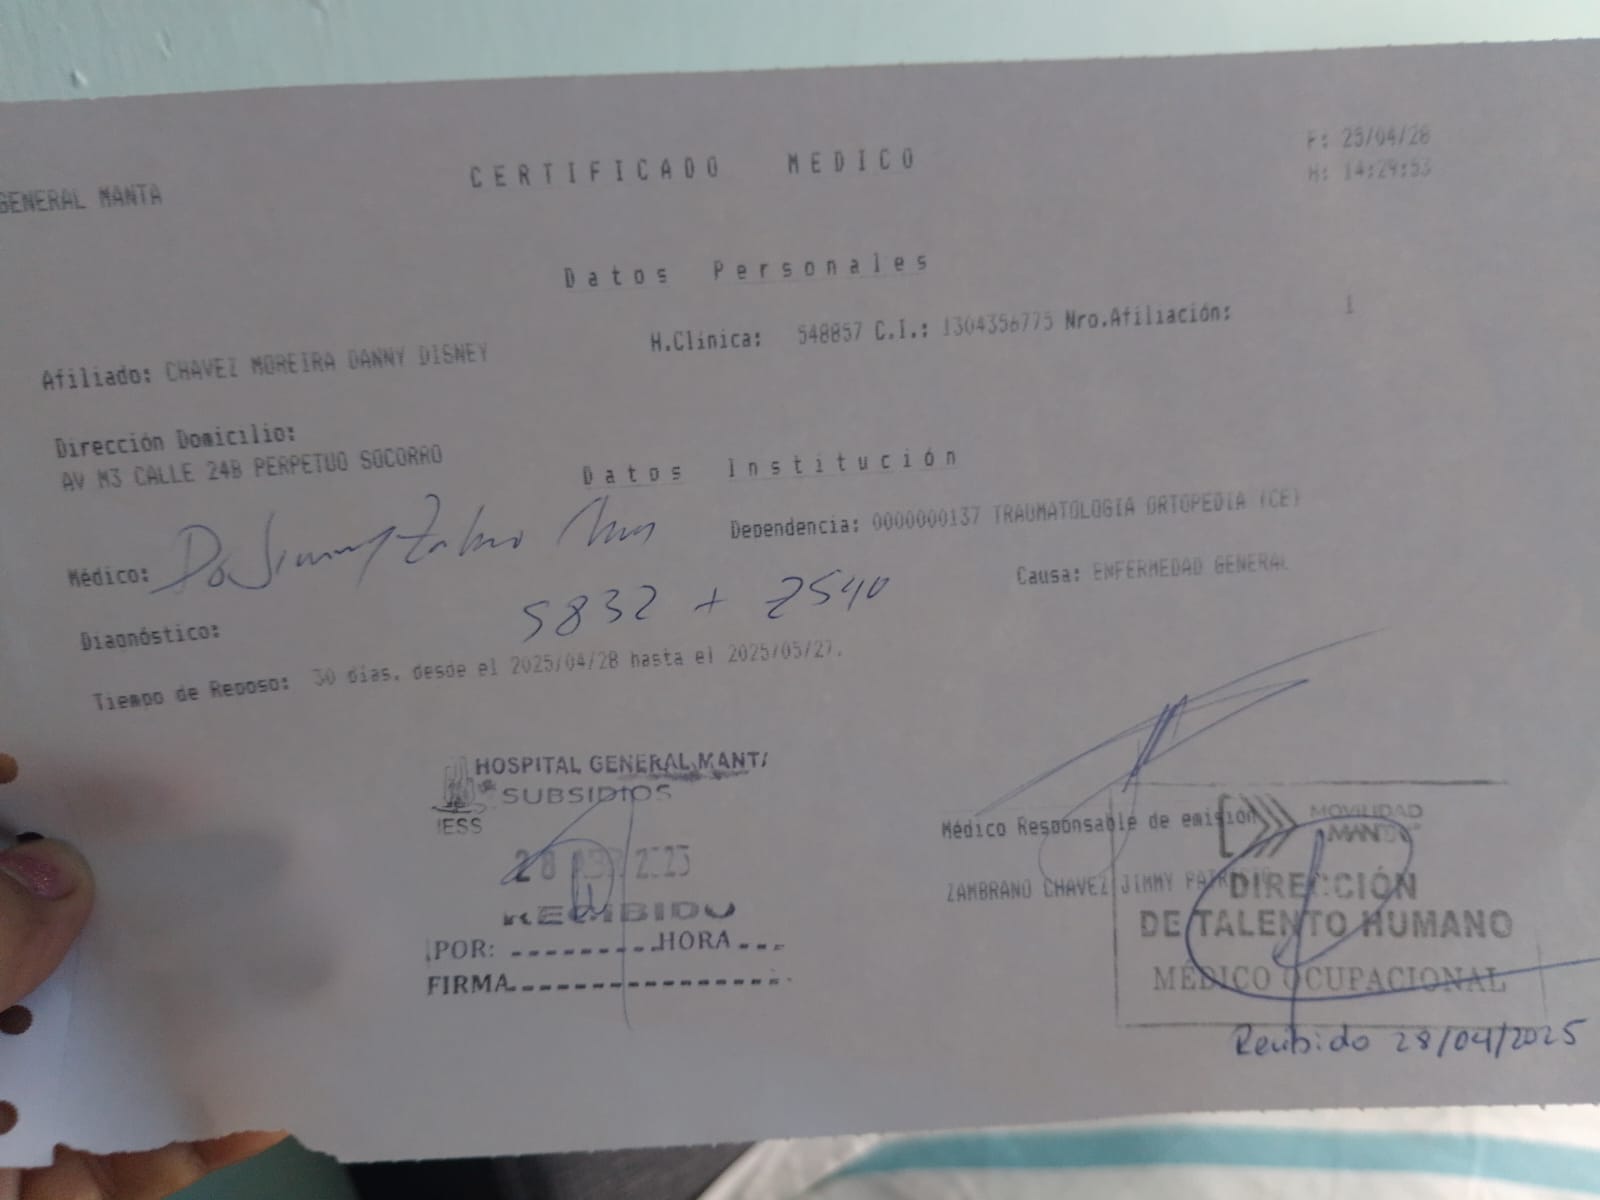 GENERAL MANTA
CERTIFICADO MEDICO
F: 25/04/28
H: 14:29:53
Datos Personales
Afiliado: CHAVEZ MOREIRA DANNY DISNEY
H.Clínica: 548857 C.I.: 1304356775 Nro.Afiliación: 1
Dirección Domicilio:
AV M3 CALLE 24B PERPETUO SOCORRO
Datos Institución
Médico: Dr Jimmy Zambrano
Dependencia: 0000000137 TRAUMATOLOGIA ORTOPEDIA (CE)
Causa: ENFERMEDAD GENERAL
Diagnóstico: S832 + Z540
Tiempo de Reposo: 30 días, desde el 2025/04/28 hasta el 2025/05/27.
HOSPITAL GENERAL MANTA
SUBSIDIOS
IESS
28 ABR 2025
RECIBIDO
POR: HORA
FIRMA
Médico Responsable de emisión
ZAMBRANO CHAVEZ JIMMY
MOVILIDAD
MANTA
DIRECCIÓN
DE TALENTO HUMANO
MÉDICO OCUPACIONAL
Recibido 28/04/2025